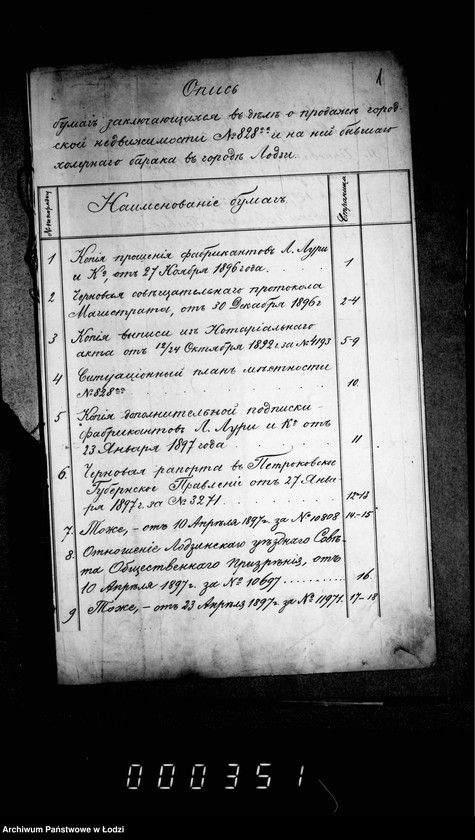 1
Опись
бумагъ заключающихся въ дѣлѣ о продажѣ город-
ской недвижимости №828ᵃᵃ и на ней бывшаго
холернаго барака въ городѣ Лодзи.
№ по порядку
Наименованіе бумагъ.
Страница
1 Копія прошенія фабрикантовъ Л. Лури
и Кº, отъ 27 Ноября 1896 года. 1
2 Черновая совѣщательнаго протокола
Магистрата, отъ 30 Декабря 1896 г 2-4
3 Копія выписи изъ Нотаріальнаго
акта отъ 12/24 Октября 1892 г. за №4193 5-9
4 Ситуаціонный планъ мѣстности
№828ᵃᵃ 10.
5 Копія дополнительной подписки
фабрикантовъ Л. Лури и Кº отъ
23 Января 1897 года 11
6. Черновая рапорта въ Петроковское
Губернское Правленіе отъ 27 Янва-
ря 1897 г. за №3271. 12-13
7. Тоже, - отъ 10 Апрѣля 1897 г. за №10808 14-15
8. Отношеніе Лодзинскаго уѣзднаго Совѣ-
та Общественнаго Призрѣнія, отъ
10 Апрѣля 1897 г. за № 10697 16.
9 Тоже, - отъ 23 Апрѣля 1897 г. за № 11971. 17-18
000351
Archiwum Państwowe w Łodzi